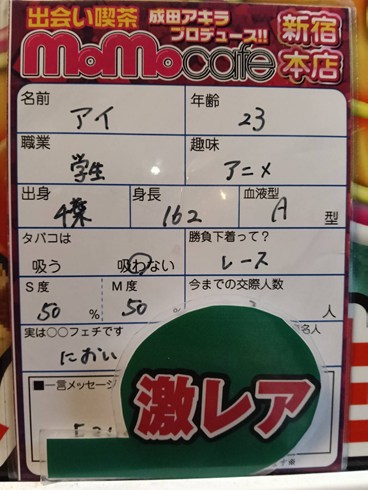 出会い喫茶 成田アキラ
プロデュース!!
MoMocafe 新宿
本店
名前 アイ 年齢 23
職業 学生 趣味 アニメ
出身 千葉 身長 162 血液型 A 型
タバコは 吸う 吸わない 勝負下着って? レース
S度 50 % M度 50 % 今までの交際人数 人
実は○○フェチです におい 名人
■一言メッセージ
激レア